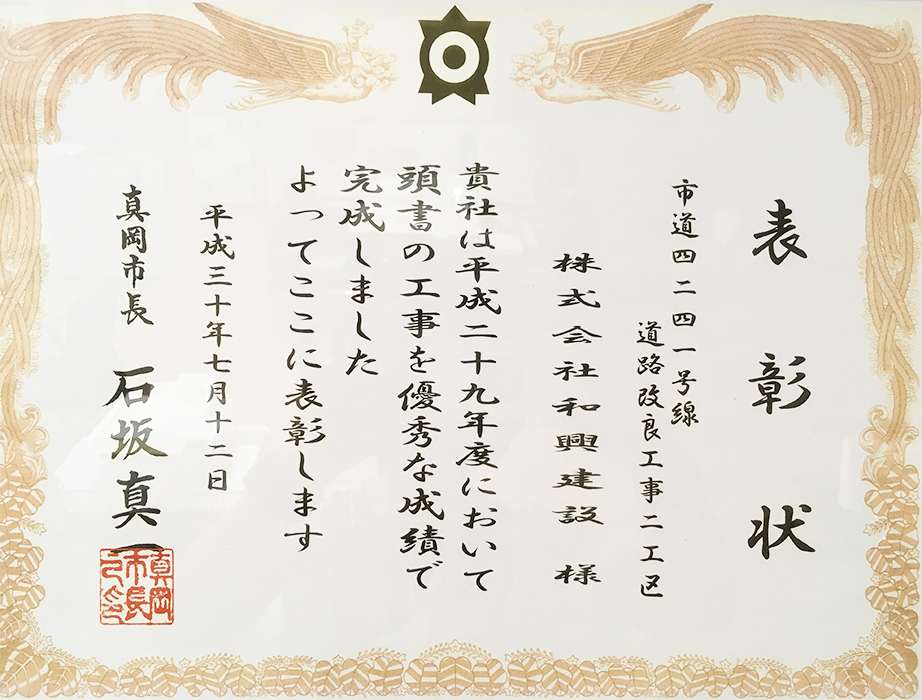 表彰状
市道四二四一号線
道路改良工事二工区
株式会社和興建設 様
貴社は平成二十九年度において
頭書の工事を優秀な成績で
完成しました
よってここに表彰します
平成三十年七月十二日
真岡市長 石坂真一
真岡
市長
之印